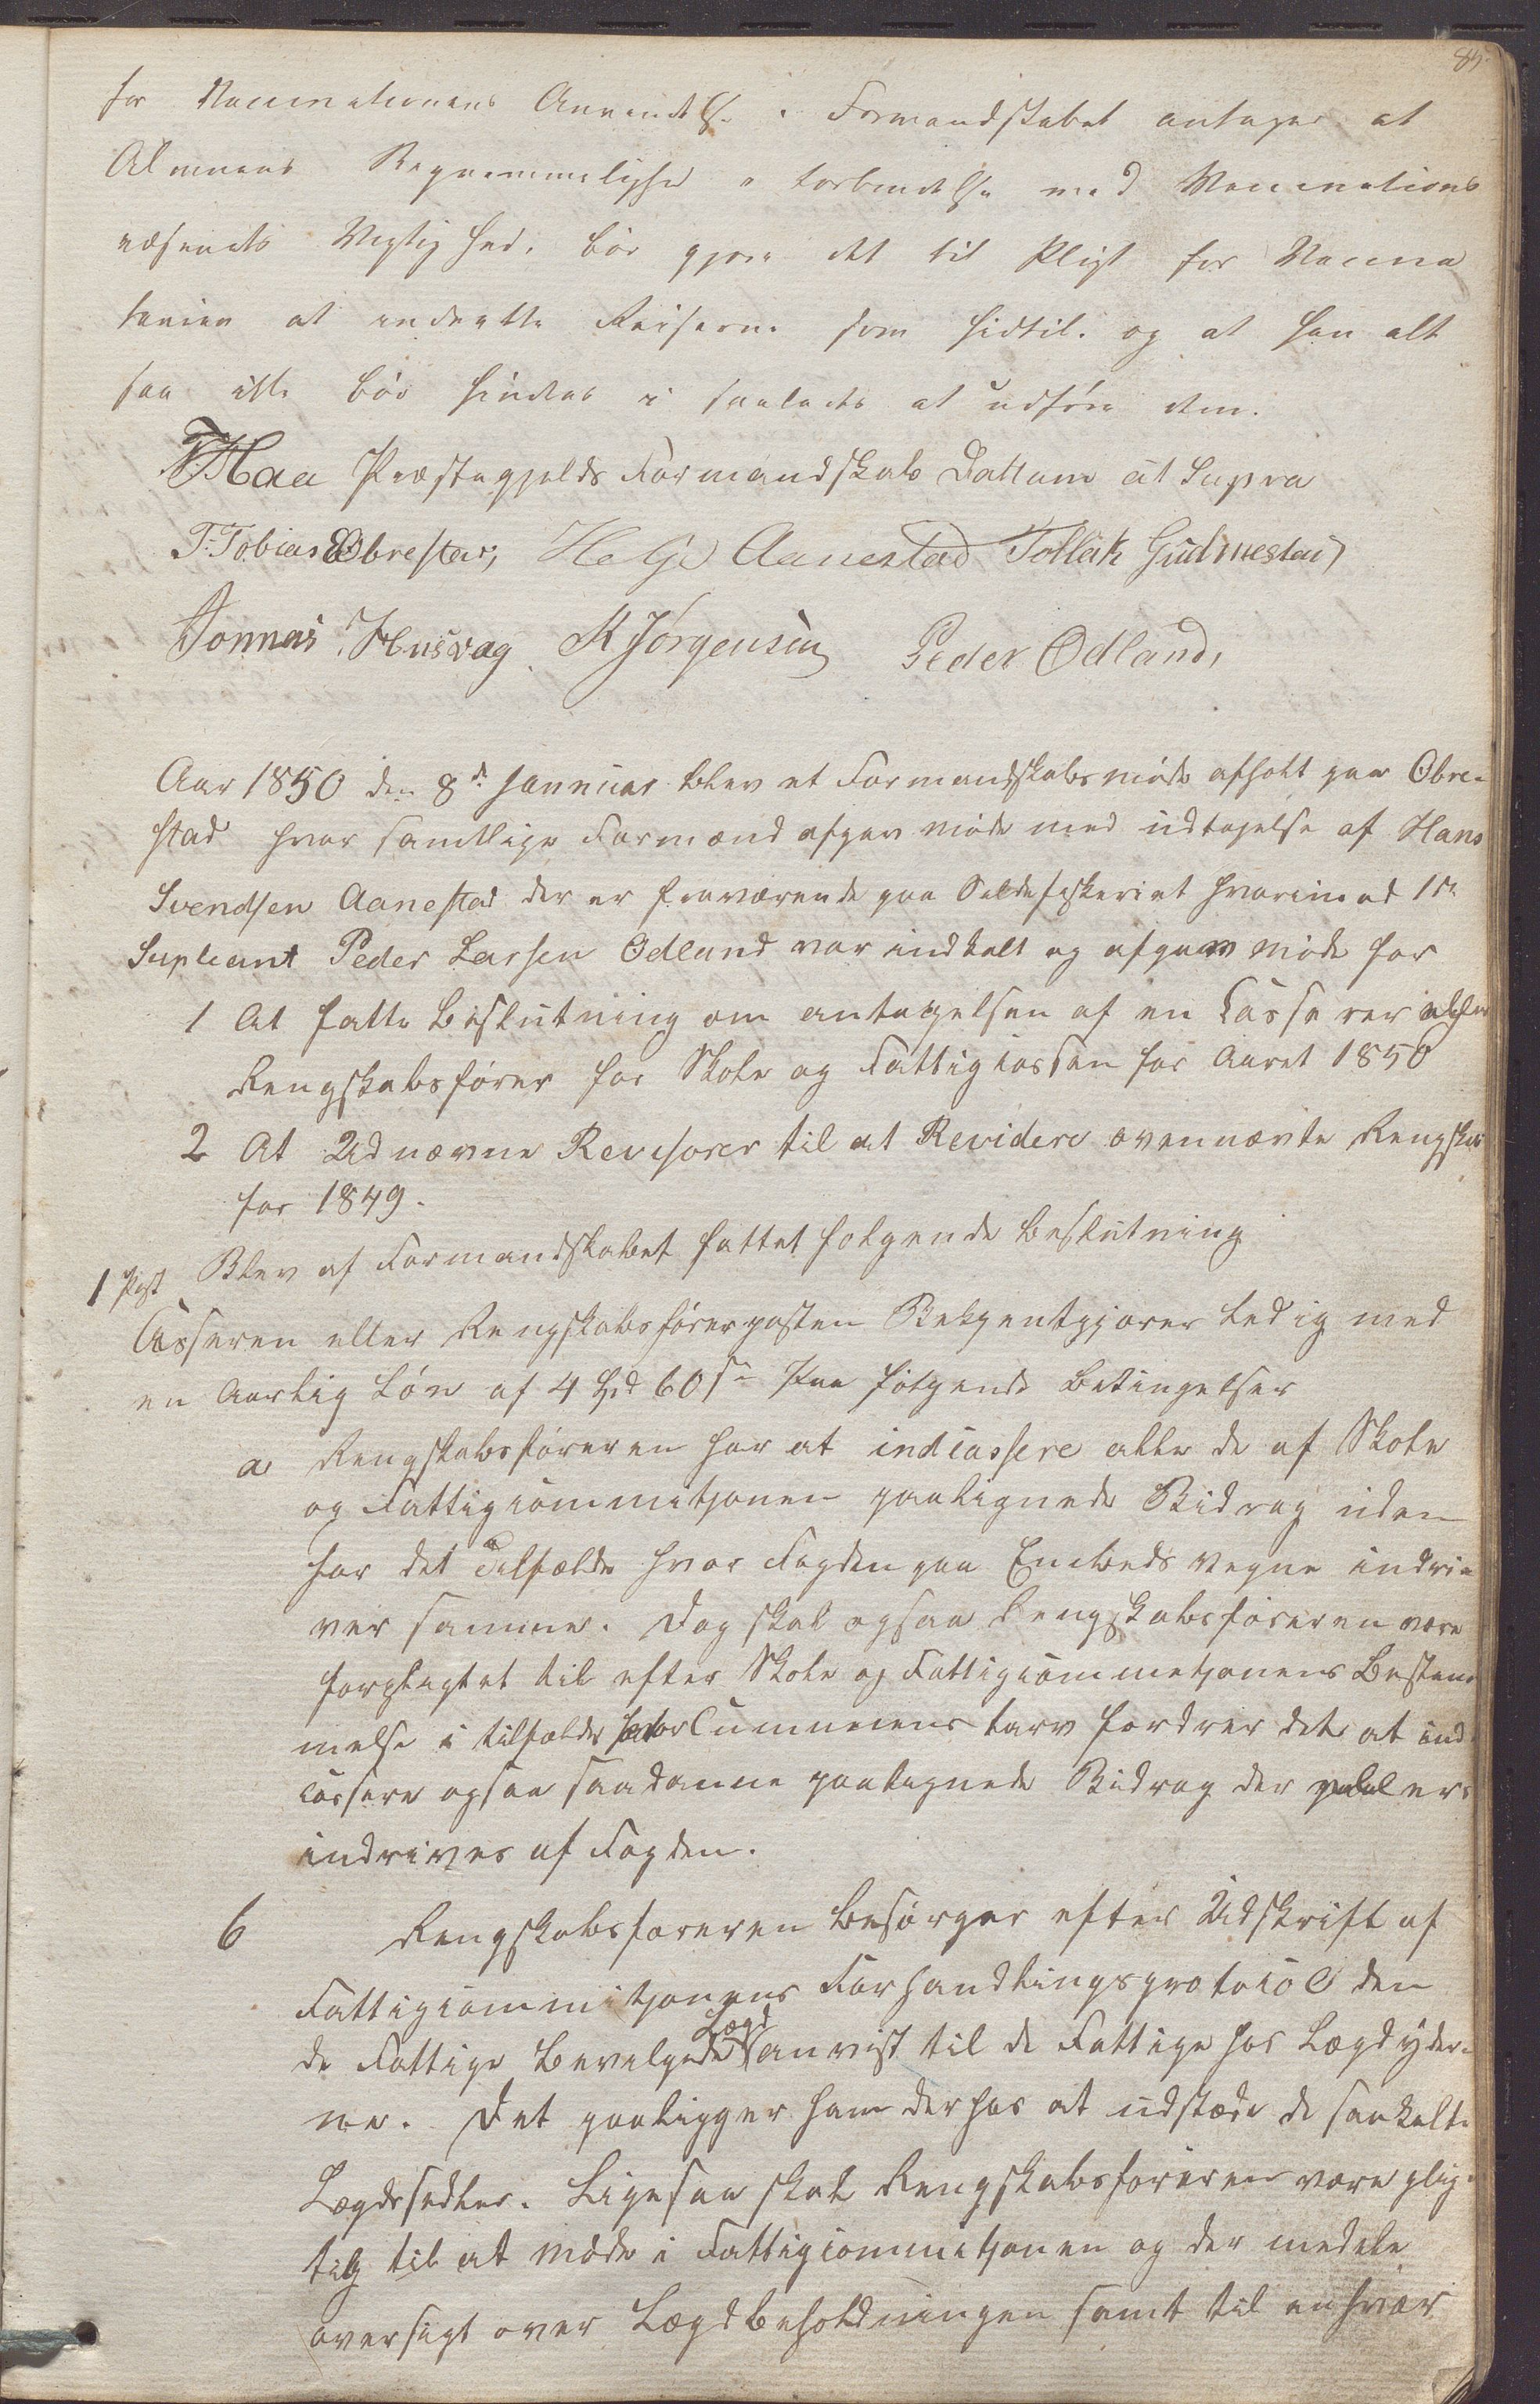 85.
for Vaccinationens Anvendelse. Formandskabet antager at
Almuens Beqvemmelighed i forbindelse med Vaccinations
væsenets Vigtighed, bör gjøre det til Pligt for Vaccina
teuren at indrette Reiserne som hidtil. og at han alt
saa ikke bör hindres i saaledes at udföre dem.
Haa Præstegjelds Formandskab Dattum ut Supra
T. Tobias Obrestad, Helje Aanestad Tollak Gudmestad
Jonnas Husvæg K Jörgensen Peder Ödland,
Aar 1850 den 8de Januar blev et Formandskabsmöde afholt paa Obre-
stad hvor samtlige Formænd afgav möde med udtagelse af Hans
Svendsen Aanestad der er fraværende paa Sildefiskeriet hvorimod 1ste
Supleant Peder Larsen Ödland var indkalt og afgav möde for
1 At fatte Beslutning om antagelsen af en Casserer eller
Rengskabsförer for Skole og Fattigcassen for Aaret 1850
2 At Udnævne Revisorer til at Revidere ovennævnte Rengskab
for 1849.
1 Post Blev af Formandskabet fattet folgende Beslutning
Casseren eller Rengskabsförerposten Bekjentgjøres ledig med
en Aarlig Lön af 4 Spd 60 s Paa fölgende Betingelser
a Rengskabsföreren har at indcassere alle de af Skole
og Fattigcommitjonen paalignede Bidrag uden
for det Tilfælde hvor Fogden paa Embeds vegne indri-
ver samme. Dog skal ogsaa Rengskabsföreren være
forpligtet til efter Skole og Fattigcommitjonens Bestem
melse i tilfælde hvor Cummunens tarv fordrer det at ind-
cassere ogsaa saadanne paalignede Bidrag der ellers
indrives af Fogden.
b Rengskabsføreren Besörger efter Udskrift af
Fattigcommitjonens Forhandlingsprotocol den
de Fattige Bevilgede Lægd anvist til de Fattige hos Lægdyder-
ne. Det paaligger ham derhos at udstæde de saakalte
Lægdssedler. Ligesaa skal Rengskabsföreren være plig-
tig til at möde i Fattigcommitjonen og der meddele
oversigt over Lægdbeholdningen samt til enhver